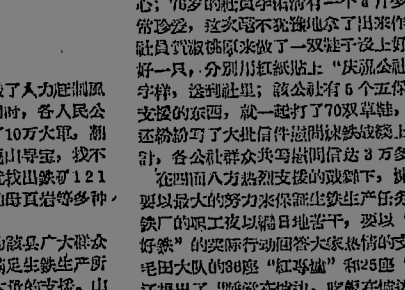 了人力赶制风
时，各人民公
了10万大军，翻
山寻宝，找不
找出鉄矿121
母頁岩等多种，
該县广大群众
滿足生鉄生产所
的支援。山
心；76岁的社員李
常珍爱，这次毫不犹豫地拿了出来作
社員買淑姚原来做了一双鞋子沒上好
好一只，分別用紅紙貼上“庆祝公社
字样，送到社里；該公社有6个五保
支援的东西，就一起打了70双草鞋，
还紛紛写了大批信件慰問炼鉄战綫上
計，各公社群众共写慰問信达3万多
在四面八方热烈支援的鼓舞下，
要以最大的努力来保証生鉄生产任务
鉄厂的职工夜以継日地苦干，要以“
好鉄”的实际行动回答大家热情的支
毛田大队的36座“紅專爐”和25座“